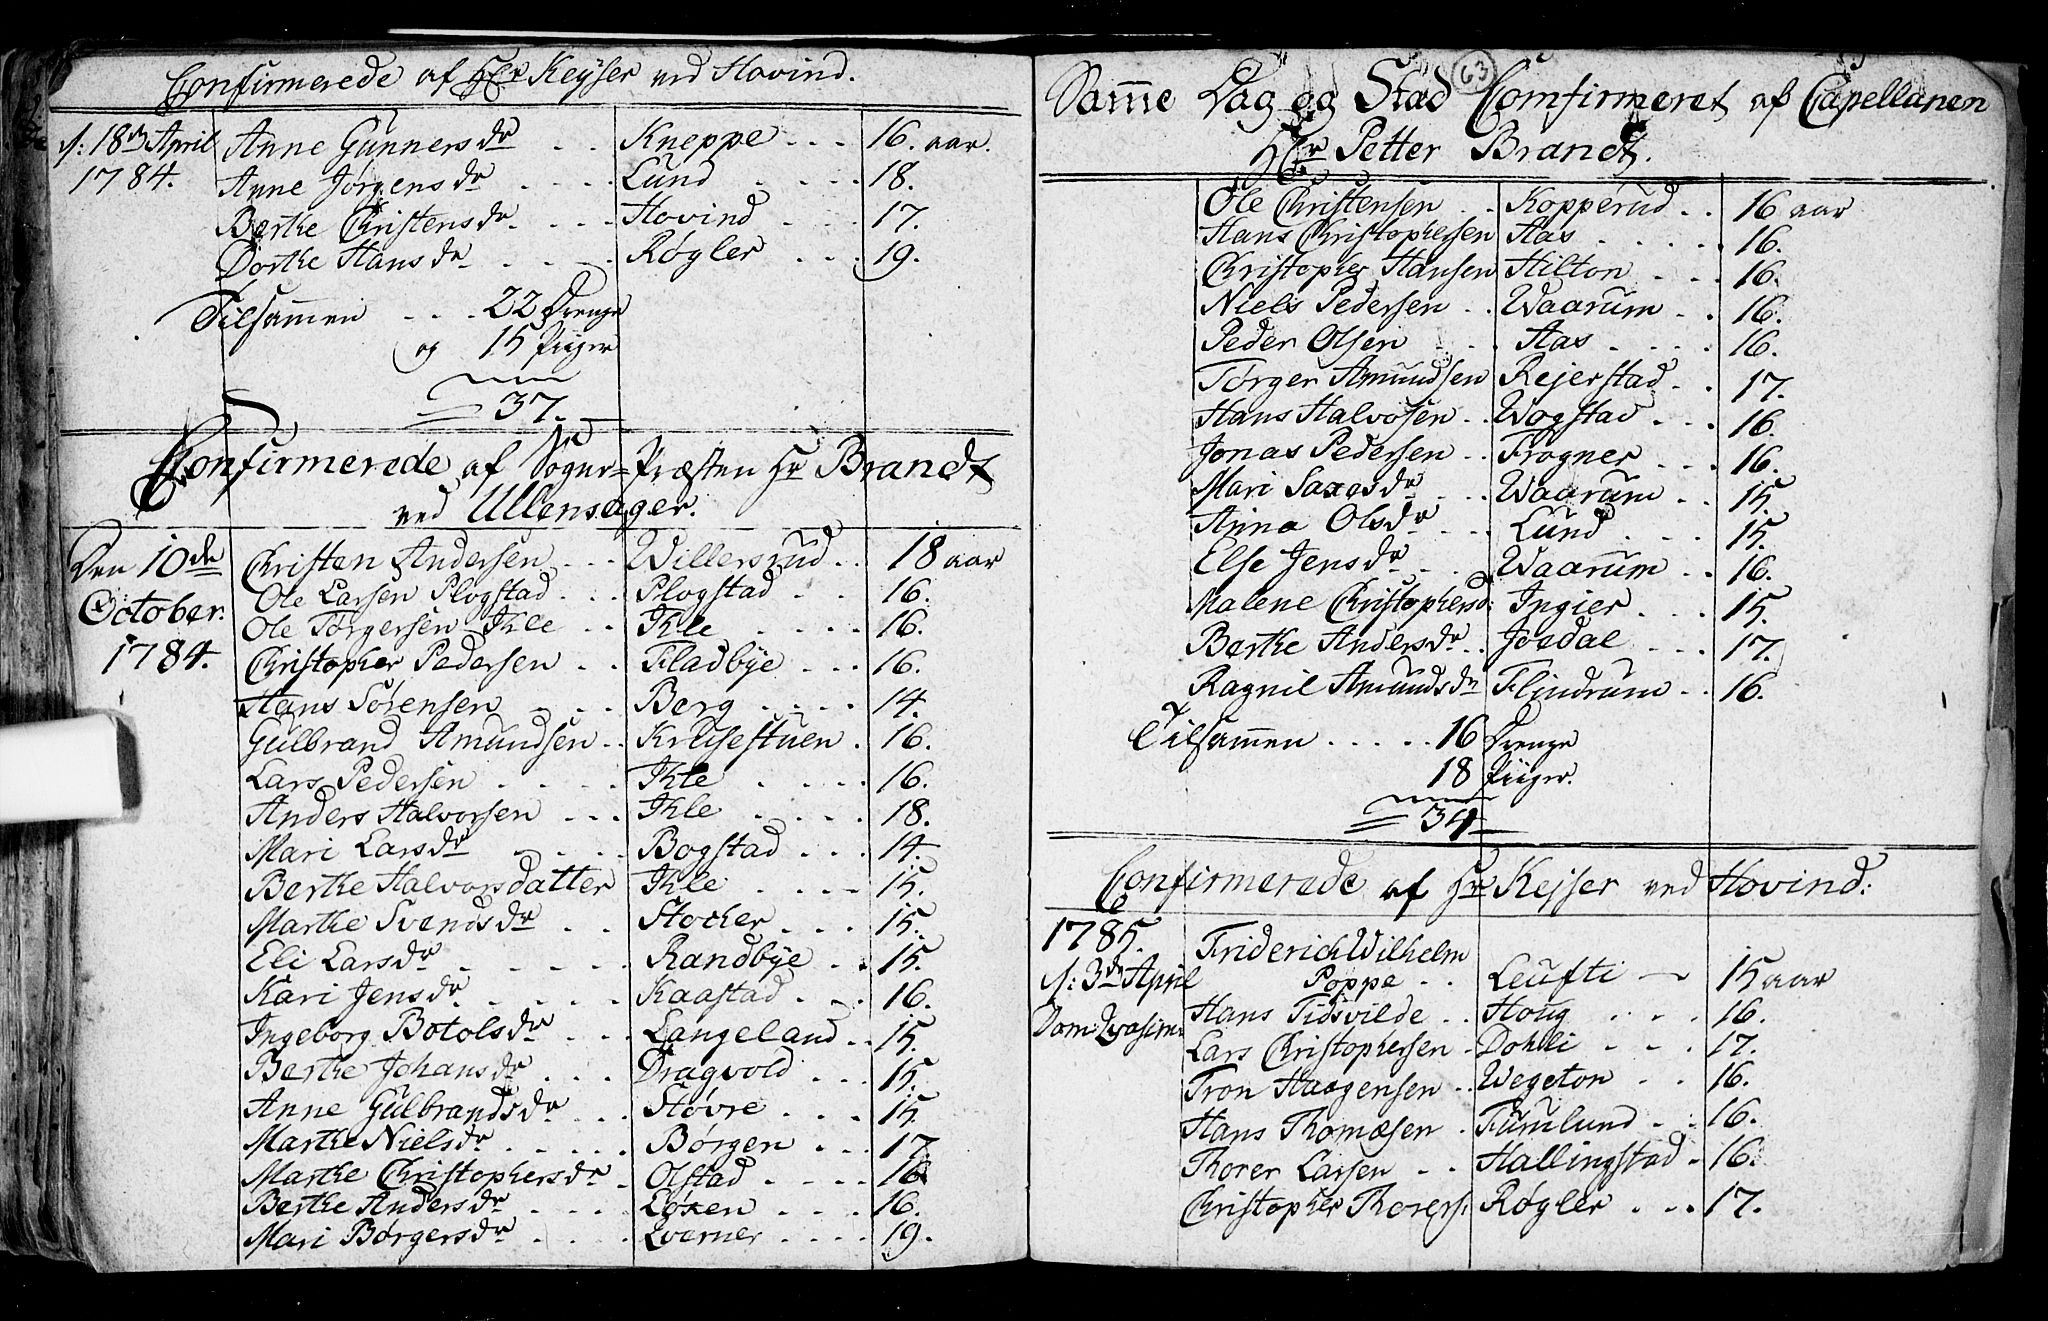 Confirmerede af Hr Keyser ved Hovind.
d: 18de April Anne Gunners dr . . Kneppe . . . 16. aar.
1784. Anne Jørgens dr . . . . Lund . . . . 18.
Berthe Christens dr . . . . Hovind . . . . 17.
Dorthe Hans dr . . . . Røgler . . . 19.
Tilsammen . . . 22 Drenge
og 15 Piiger
37.
Confirmerede af Sogne-Præsten Hr Brandt
ved Ullensager.
Den 10de Christen Andersen . . . Willersrud . . 18 aar
Ole Larsen Plogstad . . . Plogstad . . . 16.
October. Ole Tørgersen Ihle . . Ihle . . . . 16.
1784. Christopher Pedersen . . Fladbye . . . 16.
Hans Sørensen . . . Berg . . . . 14.
Gulbrand Amundsen . . Krusestuen . 16.
Lars Pedersen . . . . Ihle . . . . 16.
Anders Halvorsen . . . Ihle . . . . 18.
Mari Lars dr . . . . Bogstad . . . 14.
Berthe Halvorsdatter Ihle . . . . 15.
Marthe Svends dr . . Stocker . . . 15.
Eli Lars dr . . . . . Randbye . . 15.
Kari Jens dr . . . . . Kaastad . . . 16.
Ingeborg Botols dr . . . Langeland . . 15.
Berthe Johans dr . . . Dragvold . . . 15.
Anne Gulbrands dr . . . Støvre . . . . 15.
Marthe Niels dr . . . . . Børgen . . . 17.
Marthe Christophers dr . Olstad . . . . 16
Berthe Anders dr . . . . Løken . . . . 16.
Mari Børgers dr . . . . Qverner . . . . 19.
63
Samme Dag og Stæd Comfirmeret af Capellanen
Hr Petter Brandt.
Ole Christensen . . Kopperud . . 16 aar
Hans Christophersen Aas . . . . . 16.
Christopher Hansen Hilton . . . 16.
Niels Pedersen . . Waarum . . 16.
Peder Olsen . . . Aas . . . . 16.
Tørger Amundsen Rejerstad . . 17.
Hans Halvosen . . Wogstad . . . 16.
Jonas Pedersen . . Frogner . . . 16.
Mari Saxes dr . . . Waarum . . 15.
Anna Ols dr . . . Lund . . . . 15.
Else Jens dr . . . Waarum . . 16.
Malene Christophersd: Ingier . . . 15.
Berthe Anders dr . . Joedal . . . 17.
Ragnil Amunds dr Flindrum . . 16.
Tilsammen . . . . . 16 Drenge
18 Piiger.
34
Confirmerede af Hr Kejser ved Hovind:
1785. Friderich Wilhelm
d: 3de April Poppe . . Leufti - 15 aar
Dom: Qvasim: Hans Tidsvilde . . Houg . . . . 16.
Lars Christophersen . Dohli . . . 17.
Tron Haagensen . . Wegeton . . 16.
Hans Thomæsen . Furulund . . 16.
Thorer Larsen . . Hallingstad . 16.
Christopher Thorers: Røgler . . . 17.